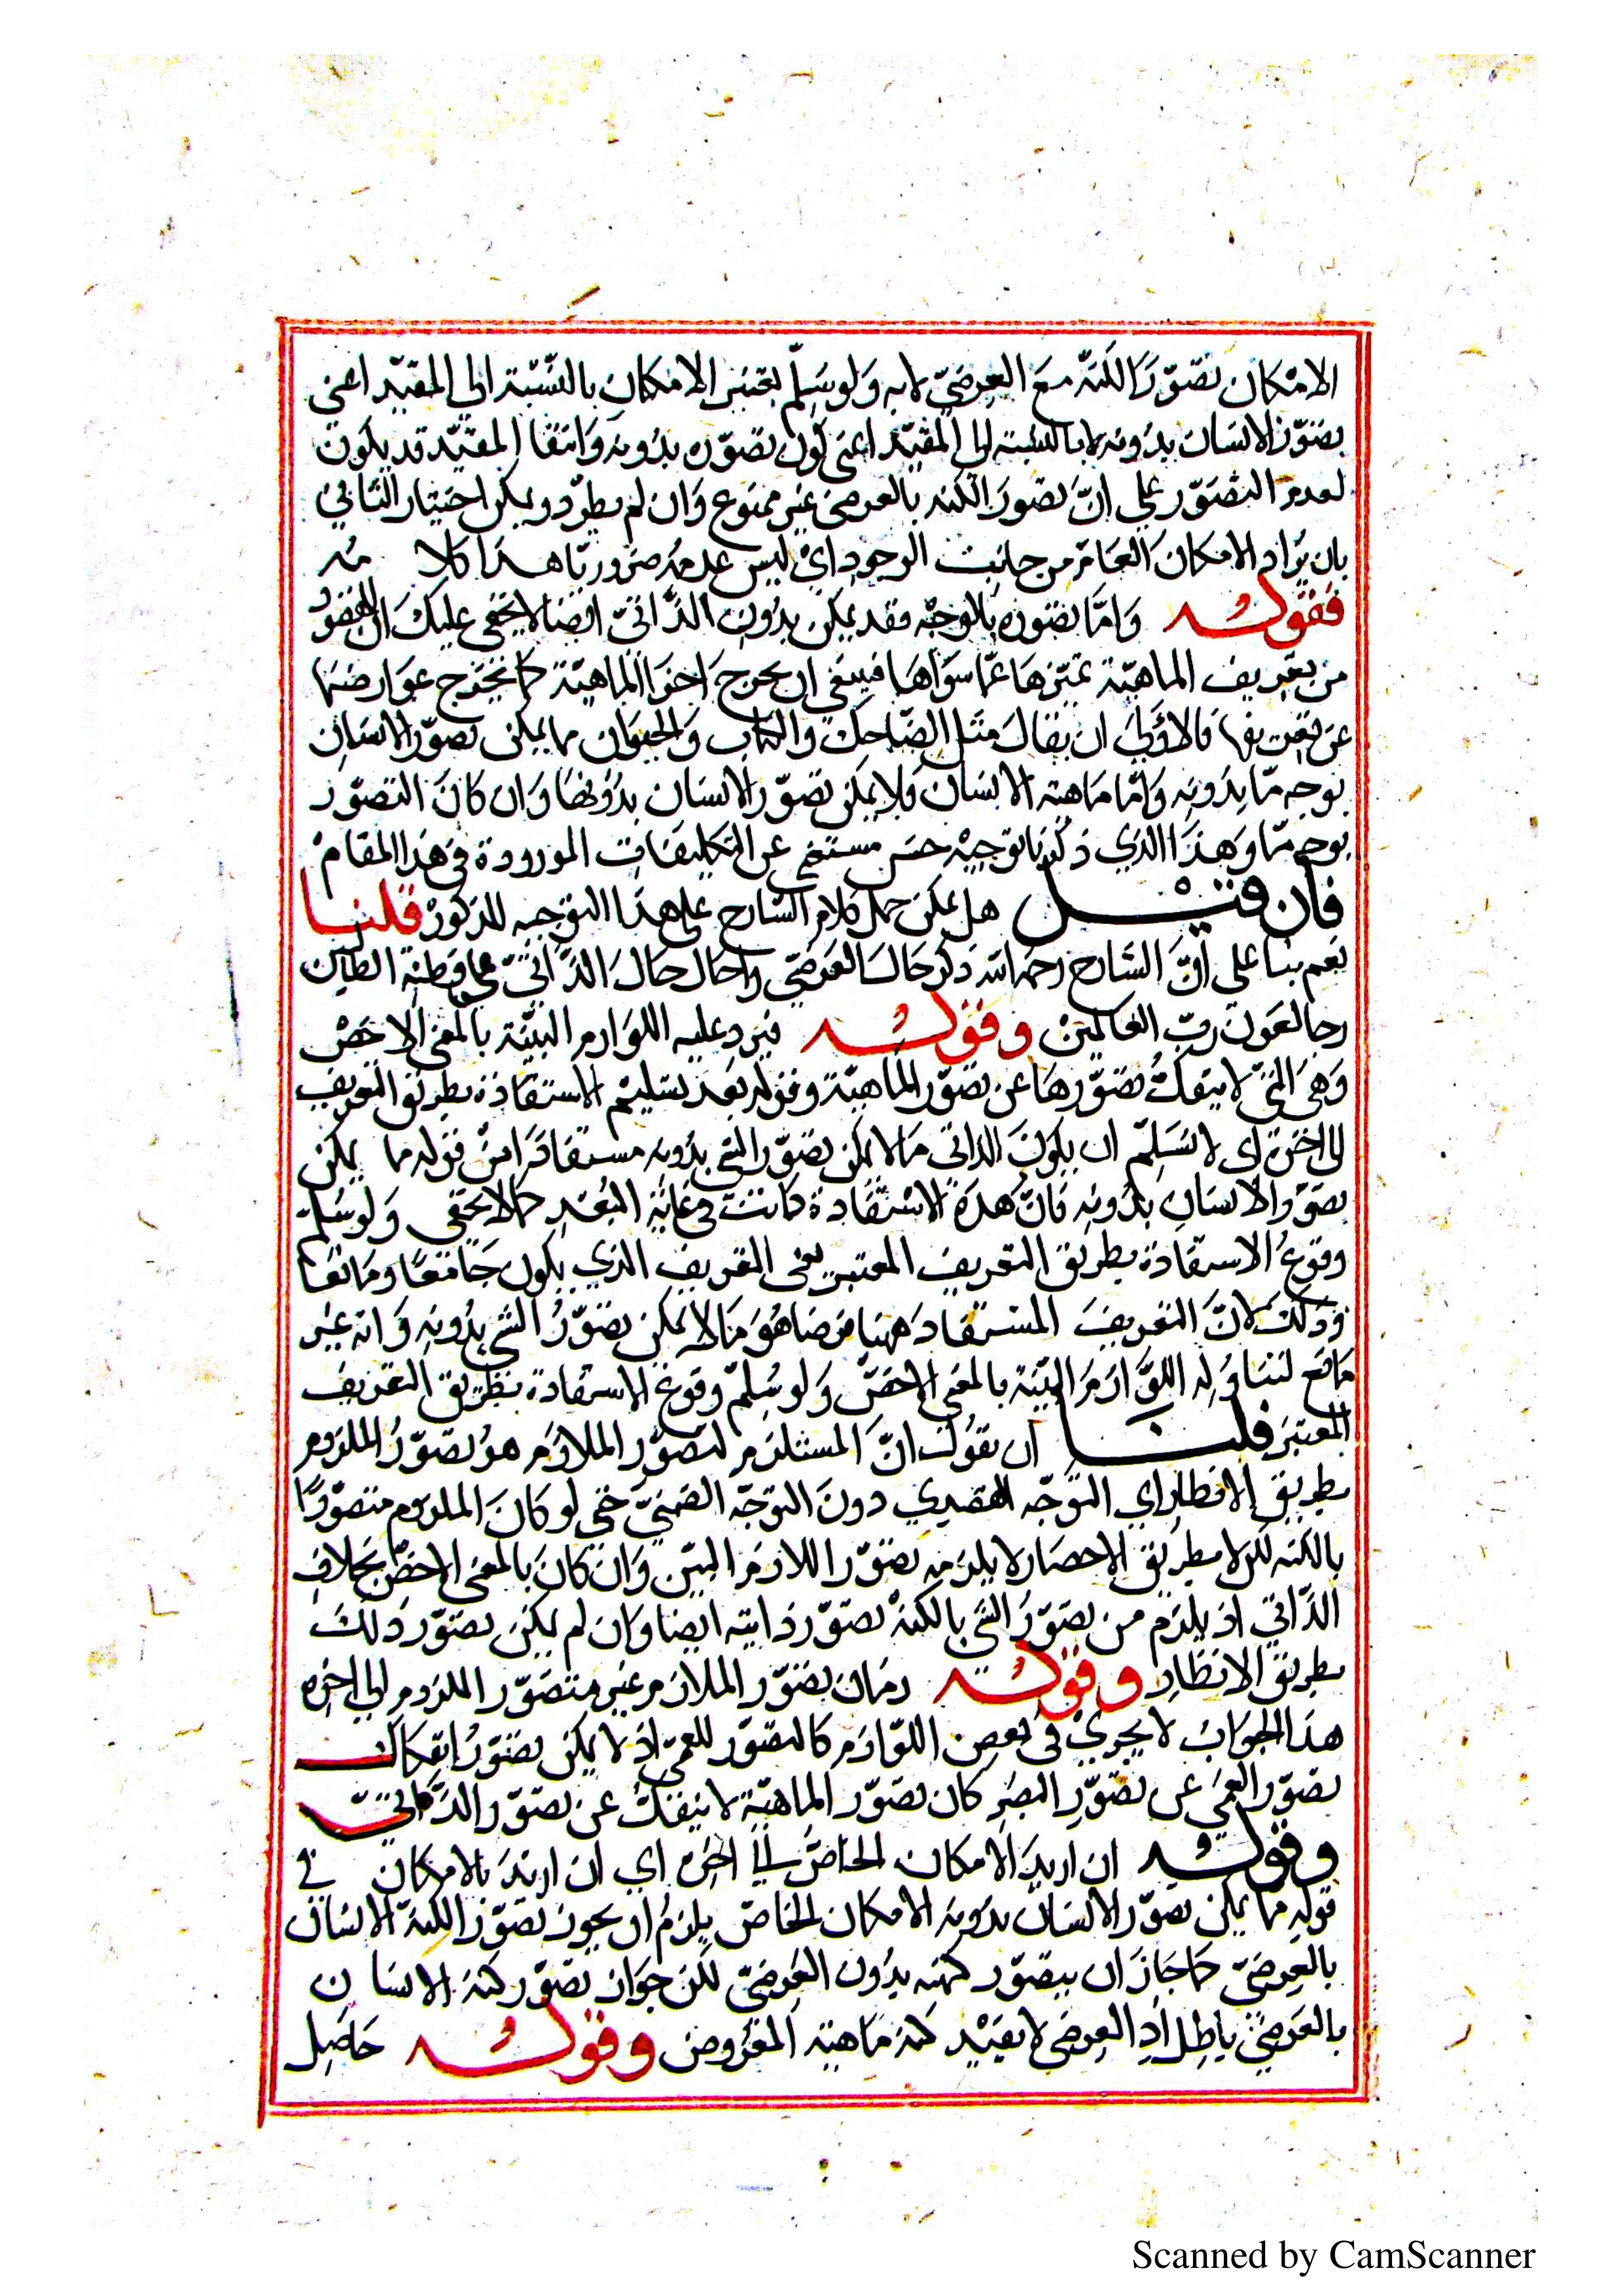 الامكان تصوّر الكنه مع العرضيّ لا به وَلو سَلِّم يعتبر الامكان بالنسّبة الى المقيّد اعني
تصَوّر الانسَان بدُونه لا بالنسبة الى المقيّد اعنى كون تصَوّره بدُونه وَانتفا المقيّد قد يكون
لعدم التصَوّر على انّ تصَور الكنه بالعرضى غير ممنوع وَان لم يطرّد ويمكن احتيار الثاني
بان يُرَاد الامكان العَامّ من جانب الوجود ايْ ليس عدمُه ضرُوريّا هذا كلامه
فقوله وَامَّا تصَوره بالوجْه فقد يمكن بدُون الذَّاتيّ ايضا لا يخفى عليكَ انّ المقصُود
من تعريف الماهيّة تمييزهَا عمّا سوَاهَا فينبغى ان يخرج اجزا الماهيّة كما يخرج عوَارضهَا
عن تعريفها فالاوْلَى ان يقالَ مثل الضّاحك والكاتب وَالحيوَان مما يمكن تصوّر الانسَان
بوجه مّا بدُونه وَامّا مَاهية الانسَان فلا يمكن تصَوّر الانسَان بدُونهَا وَان كان التصَوّر
بوجه مّا وَهذَا الذي ذكرنا توجيْه حسَن مستغنى عن التكليفات الموروودة في هذا المقام
فان قيل هل يمكن حمل كلام الشارح على هذا التوجيه المذكورْ قلنا
نعم بنا على انَّ الشارح رحمه الله ذكر حال العَرَضي واحال حَال الذَّاتيّ على فطنة الطالبين
رجا لعون ربّ العَالمين وقوله فيرد عليه اللوَازم البيّنة بالمعنى الاخصّْ
وَهى التي لا ينفكّ تصَوّرهَا عن تصَوّر الماهيّة وقوله بَعد تسليم الاستفادة بطريق التعريف
الى اخره اى لا نسَلّم ان يكونَ الذاتي مَا لا يمكن تصَوّر الشئ بدُونه مستفادًا منْ قوله مما يمكن
تصَوّر الانسَانِ بدُونه فانّ هَذه الاسْتفَادة كانت في غاية البُعْد كما لا يخفى وَلو سُلّم
وقوعُ الاستفادة بطريق التعريف المعتبر يعنى التعريف الذي يكون جَامعًا ومَانعًا
وَذلكَ لانَّ التعريفَ المستفاد ههنا فرضا هُوَ مَا لا يمكن تصَوّرُ الشئ بدُونه وَانه غيْر
مَانع لتنَاوُله اللوَّازمَ البيّنة بالمعنى الاخصّ وَلو سُلمّ وقوعُ الاستفادة بطَريق التعْريف
المعتبَر قلنا ان نقوُل انّ المستلزم لتصَوّر الملازم هو تصَوّرُ الملزوم
بطريق الاخطار اي التَوجّه القصدي دون التوجّه الضمنيّ حتى لو كانَ الملزوم متصوّرًا
بالكنه لكن لا بطريق الاحضار لا يلزمه تصَوّر اللازمَ البيّن وَان كان بالمعنى الاخصّ بخلاف
الذّاتي اذ يلزم من تصَوّر الشئ بالكنْه تصَوّر ذاتيه ايضا وَان لم يكن تصَوّر ذلكَ
بطريق الاخطَار وقوله زمان تصَوّر الملازم غير متصَوّر الملزوم الى اخره
هذا الجوَابُ لا يجري في بعض اللوّازم كالتصَوّر للعمى اذ لا يمكن تصَوّر انفكاك
تصَوّر العمى عن تصَوّر البصَر كان تصَوّر الماهيّة لا ينفك عن تصَوّر الذَّاتيّ
وقوله ان اريدَ الامكان الخاصّ الى اخره اي ان اريدَ بالامكان في
قوله مما يمكن تصَوّر الانسان بدُونه الامكان الخاصّ يلزمُ ان يجوز تصَوّر الكنه الانسَان
بالعرضيّ كما جَازَ ان يتصَوّر كنهه بدُون العَرضيّ لكن جوَاز تصَوّر كنه الانسَان
بالعَرضيّ باطل اذِ العرضى لا يفيْد كنه مَاهية المعروض وقوله حَاصِل
Scanned by CamScanner